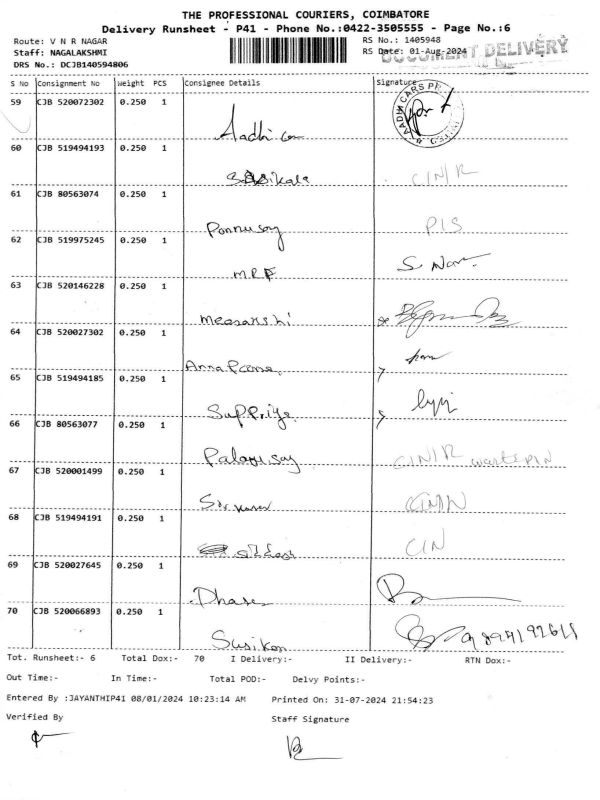 THE PROFESSIONAL COURIERS, COIMBATORE
Delivery Runsheet - P41 - Phone No.:0422-3505555 - Page No.:6
Route: V N R NAGAR RS No.: 1405948
Staff: NAGALAKSHMI RS Date: 01-Aug-2024 DOCUMENT DELIVERY
DRS No.: DCJB140594806
S No Consignment No Weight PCS Consignee Details Signature
59 CJB 520072302 0.250 1 Aadhi AADHI CARS
60 CJB 519494193 0.250 1 C/N/R
61 CJB 80563074 0.250 1 Ponnusay P/S
62 CJB 519975245 0.250 1 MRF
63 CJB 520146228 0.250 1
64 CJB 520027302 0.250 1
65 CJB 519494185 0.250 1 Suppriya
66 CJB 80563077 0.250 1 C/N/R
67 CJB 520001499 0.250 1
68 CJB 519494191 0.250 1 C/N
69 CJB 520027645 0.250 1
70 CJB 520066893 0.250 1
Tot. Runsheet:- 6 Total Dox:- 70 I Delivery:- II Delivery:- RTN Dox:-
Out Time:- In Time:- Total POD:- Delvy Points:-
Entered By :JAYANTHIP41 08/01/2024 10:23:14 AM Printed On: 31-07-2024 21:54:23
Verified By Staff Signature